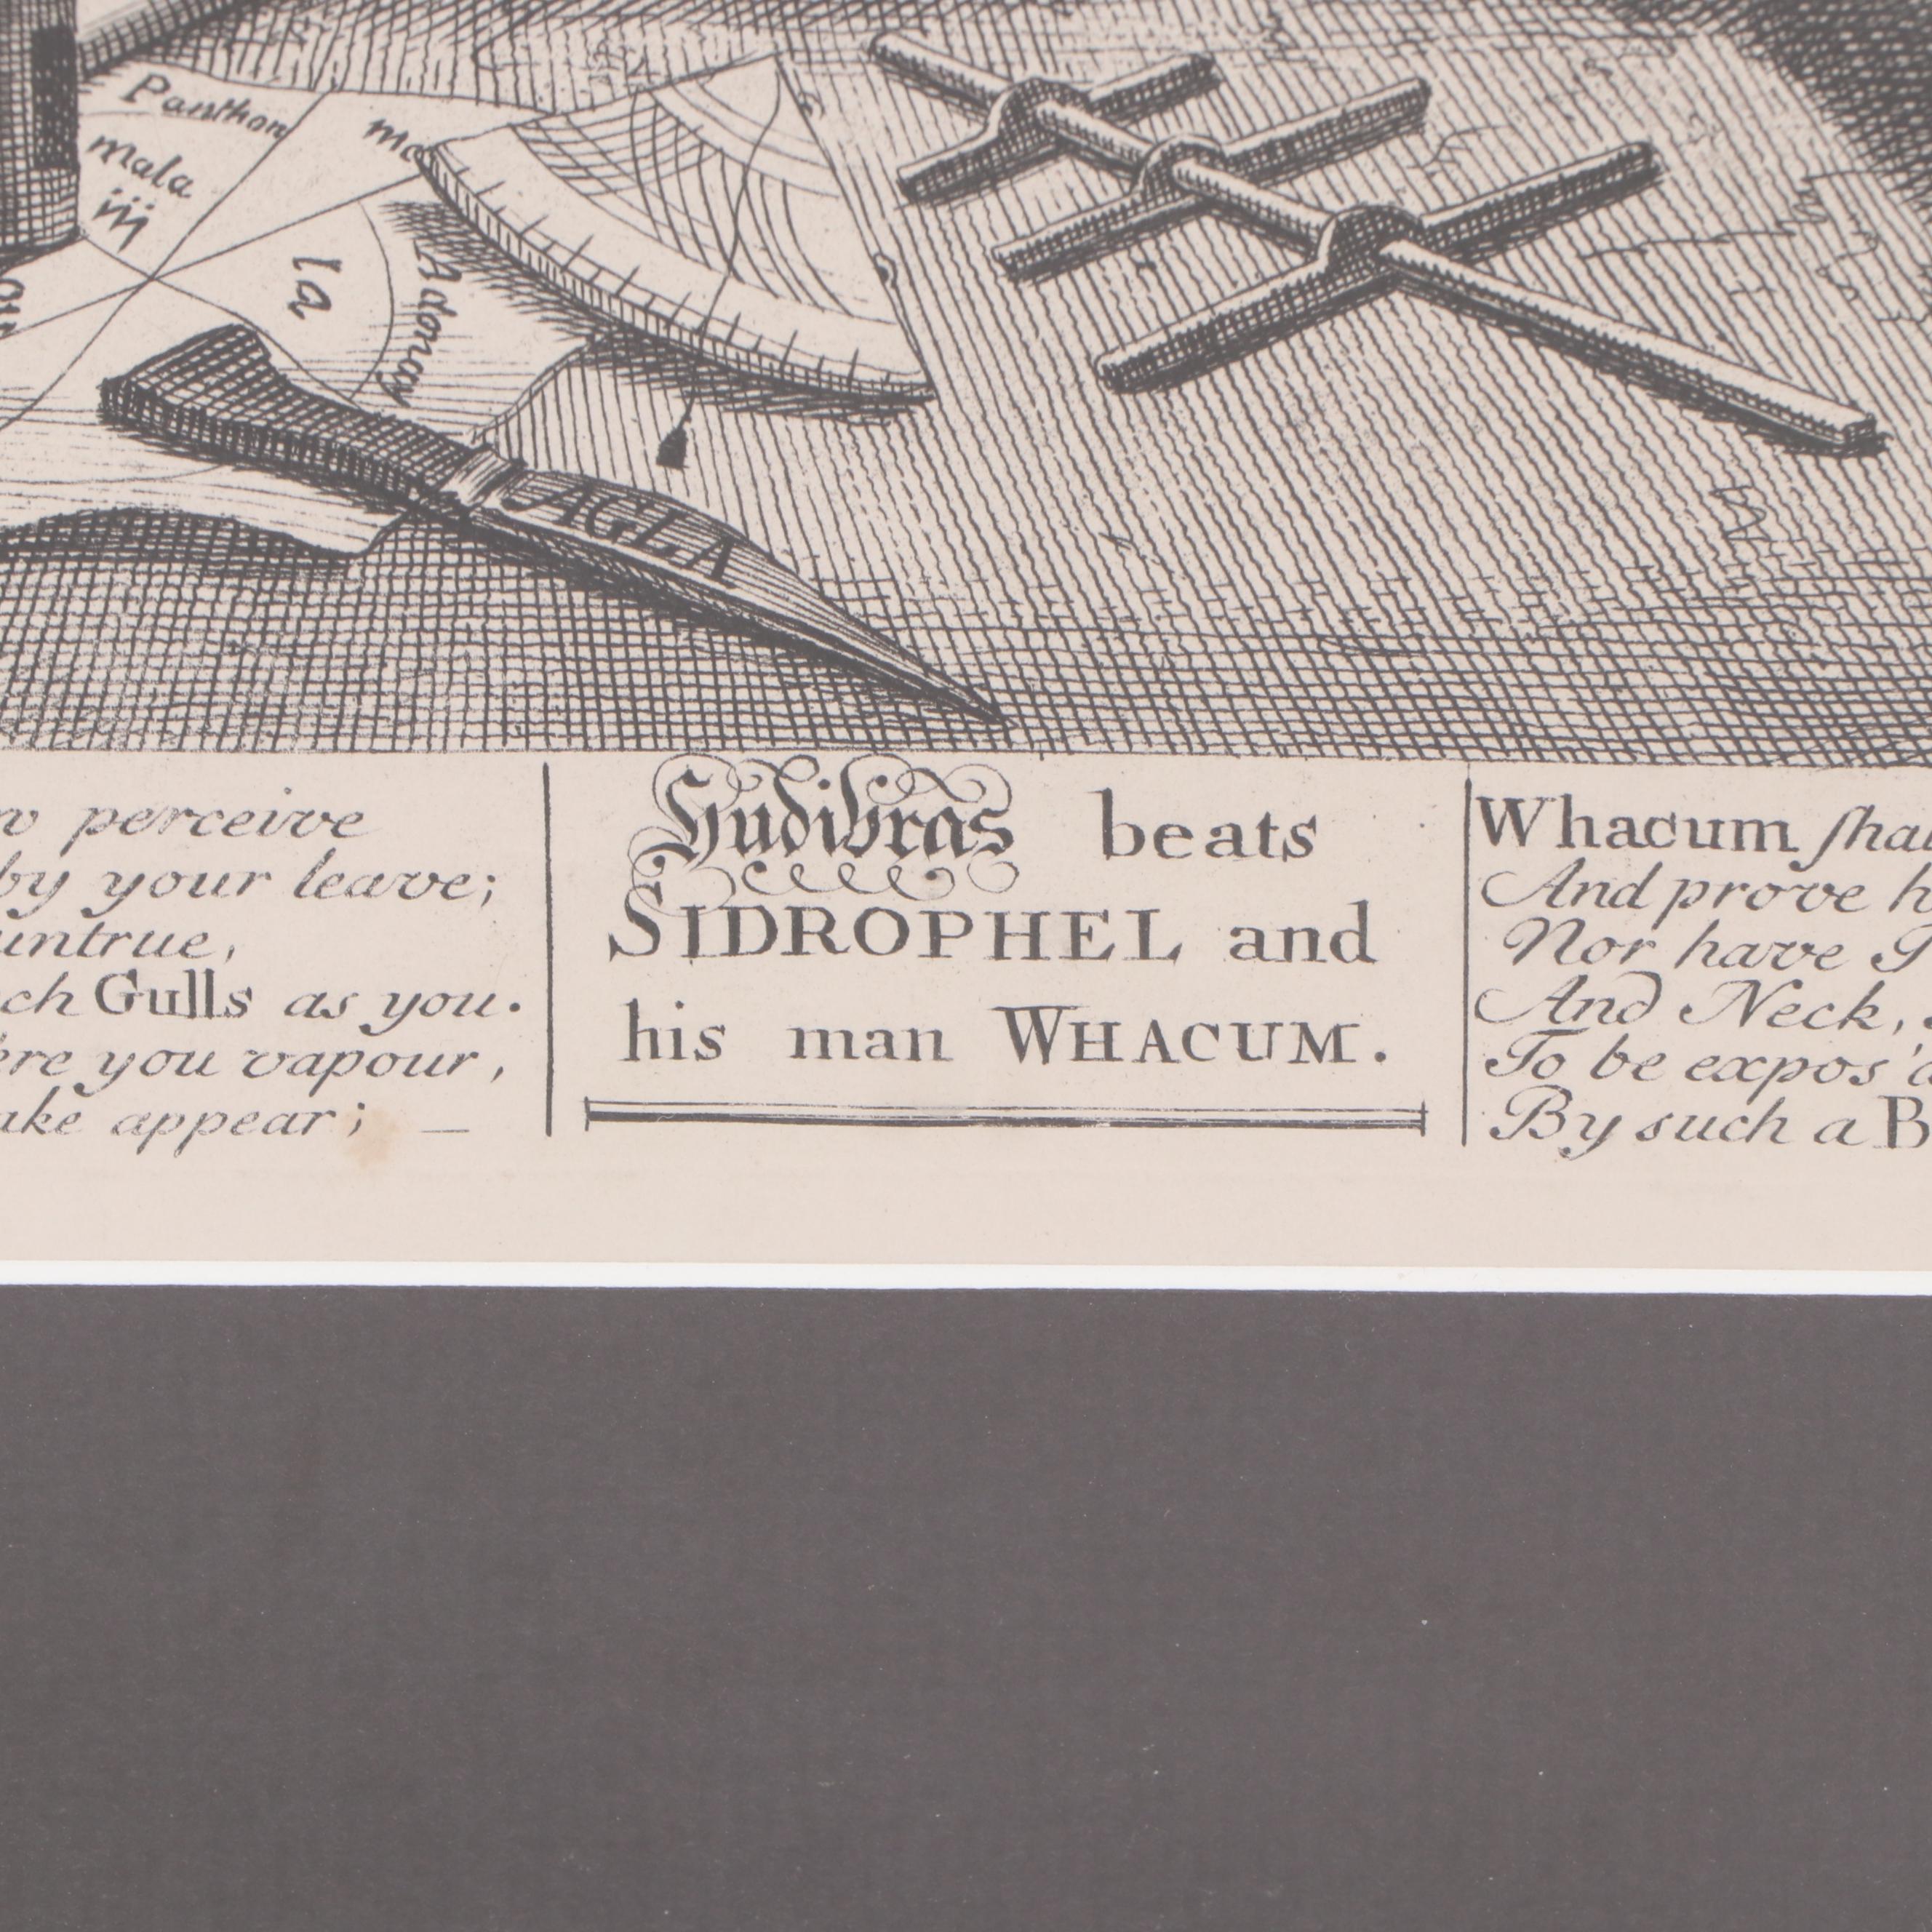 Panthon
mala
iij
ma
la
Adonay
AGLA
perceive
by your leave;
untrue,
Gulls as you.
you vapour,
appear; —
Hudibras beats
SIDROPHEL and
his man WHACUM.
Whacum
And prove
Nor have
And Neck,
To be
By such a